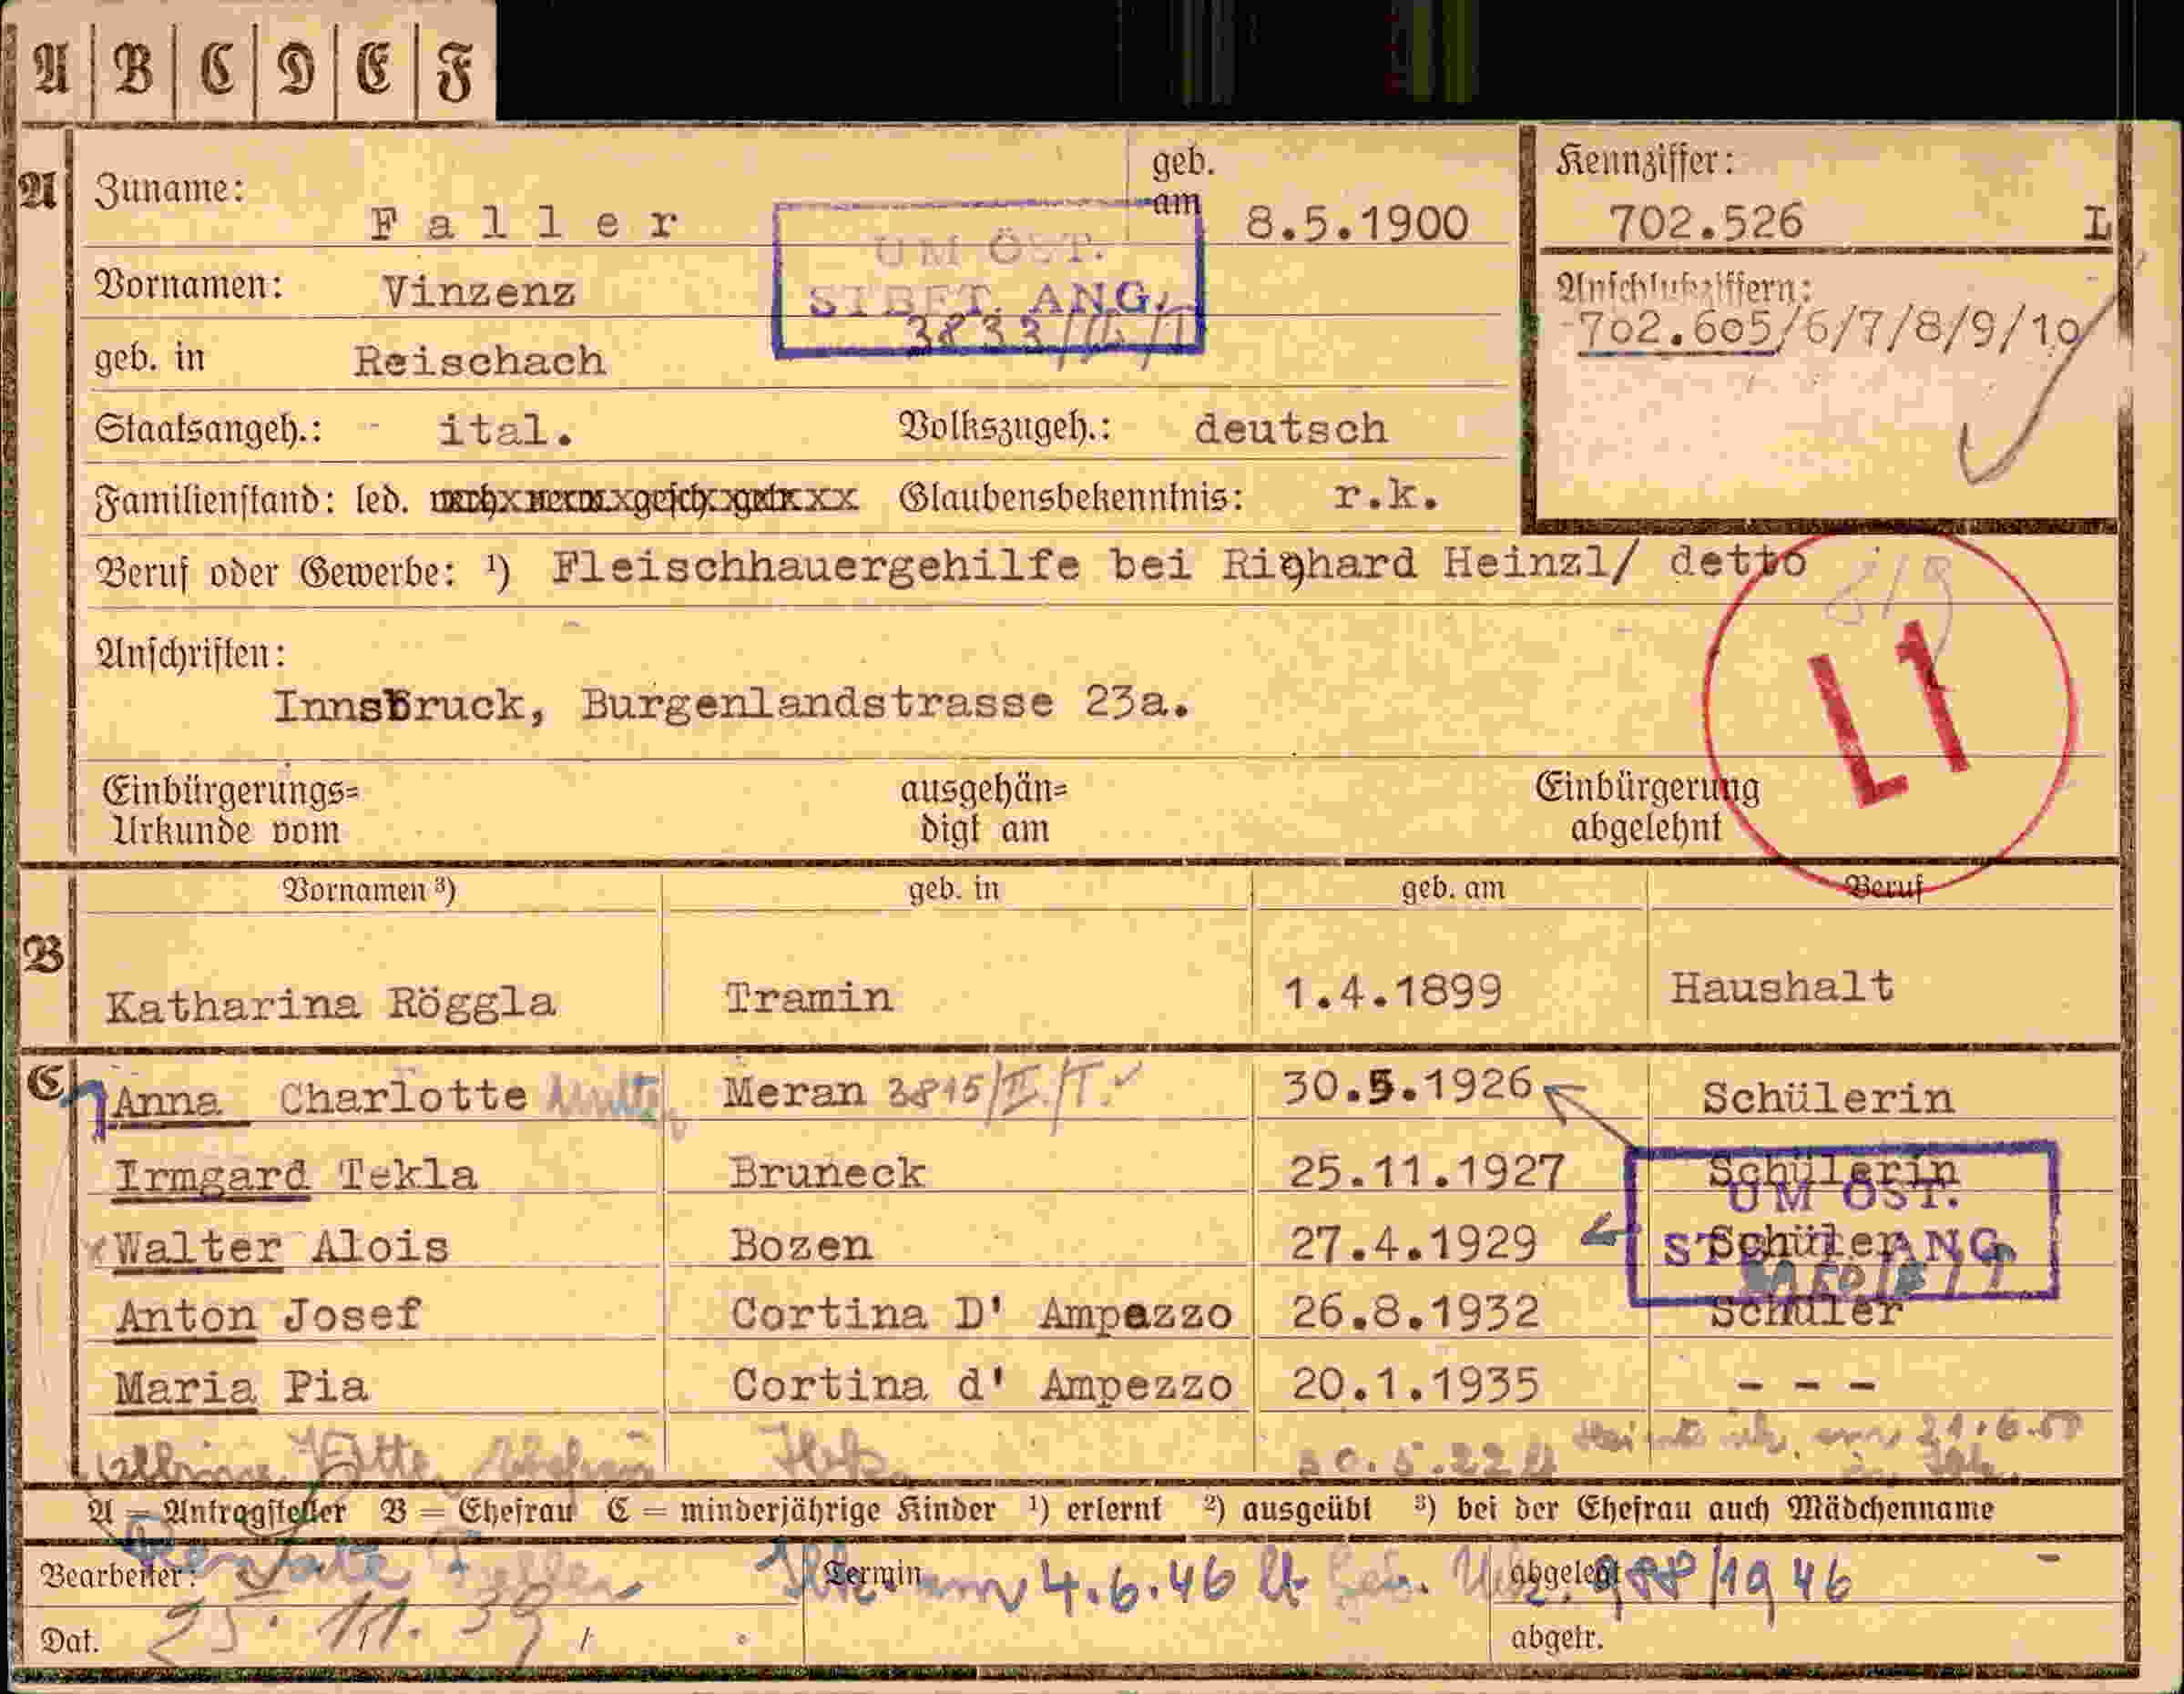 A B C D E F
A
Zuname: Faller geb. am 8.5.1900
UM ÖST.
STBFT. ANG.
Kennziffer:
702.526 L
Vornamen: Vinzenz
Anschlußziffern:
702.605/6/7/8/9/10
geb. in Reischach
Staatsangeh.: ital. Volkszugeh.: deutsch
Familienstand: led. verh. verw. gesch. getr. Glaubensbekenntnis: r.k.
Beruf oder Gewerbe: ¹) Fleischhauergehilfe bei Righard Heinzl/ detto
L1
Anschriften:
Innsbruck, Burgenlandstrasse 23a.
Einbürgerungs= Urkunde vom ausgehän= digt am Einbürgerung abgelehnt
Vornamen ³) geb. in geb. am Beruf
B
Katharina Röggla Tramin 1.4.1899 Haushalt
C
Anna Charlotte Meran 3815/II./T. 30.5.1926 Schülerin
Irmgard Tekla Bruneck 25.11.1927 Schülerin
UM ÖST.
Walter Alois Bozen 27.4.1929 Schüler
ANG.
Anton Josef Cortina D' Ampezzo 26.8.1932 Schüler
Maria Pia Cortina d' Ampezzo 20.1.1935 - - -
21.6.50
A = Antragsteller B = Ehefrau C = minderjährige Kinder ¹) erlernt ²) ausgeübt ³) bei der Ehefrau auch Mädchenname
Bearbeiter: Termin am 4.6.46 lt. Geb. abgelegt 988/1946
Dat. 25. 11. 39 abgetr.